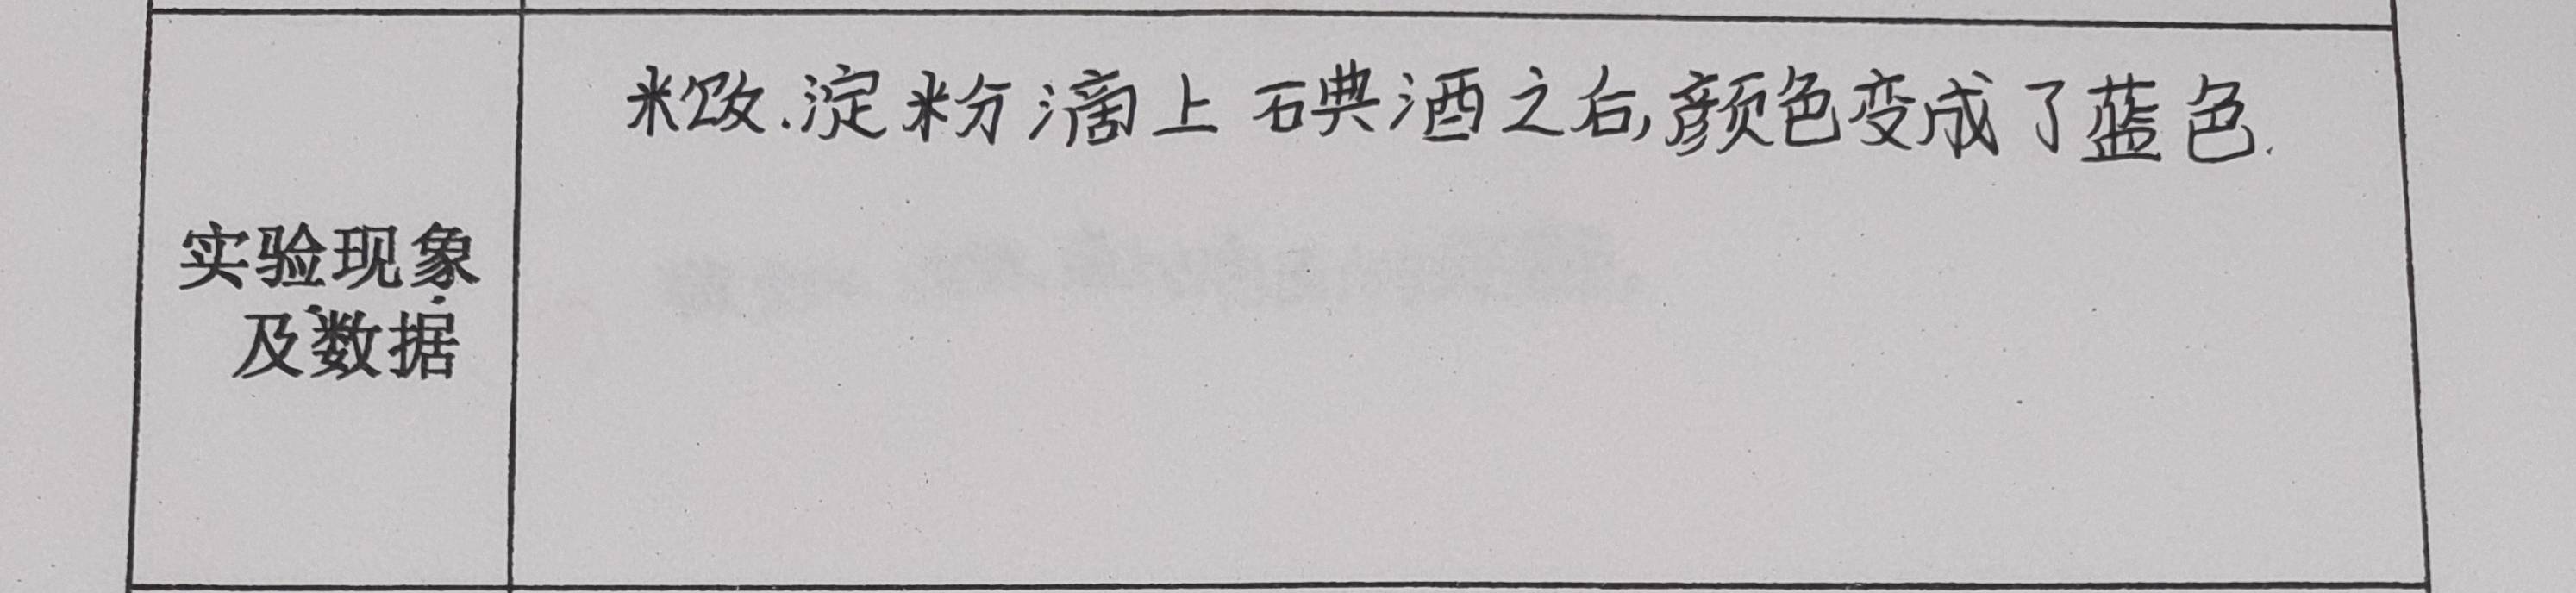 米饭.淀粉滴上碘酒之后,颜色变成了蓝色.
实验现象
及数据